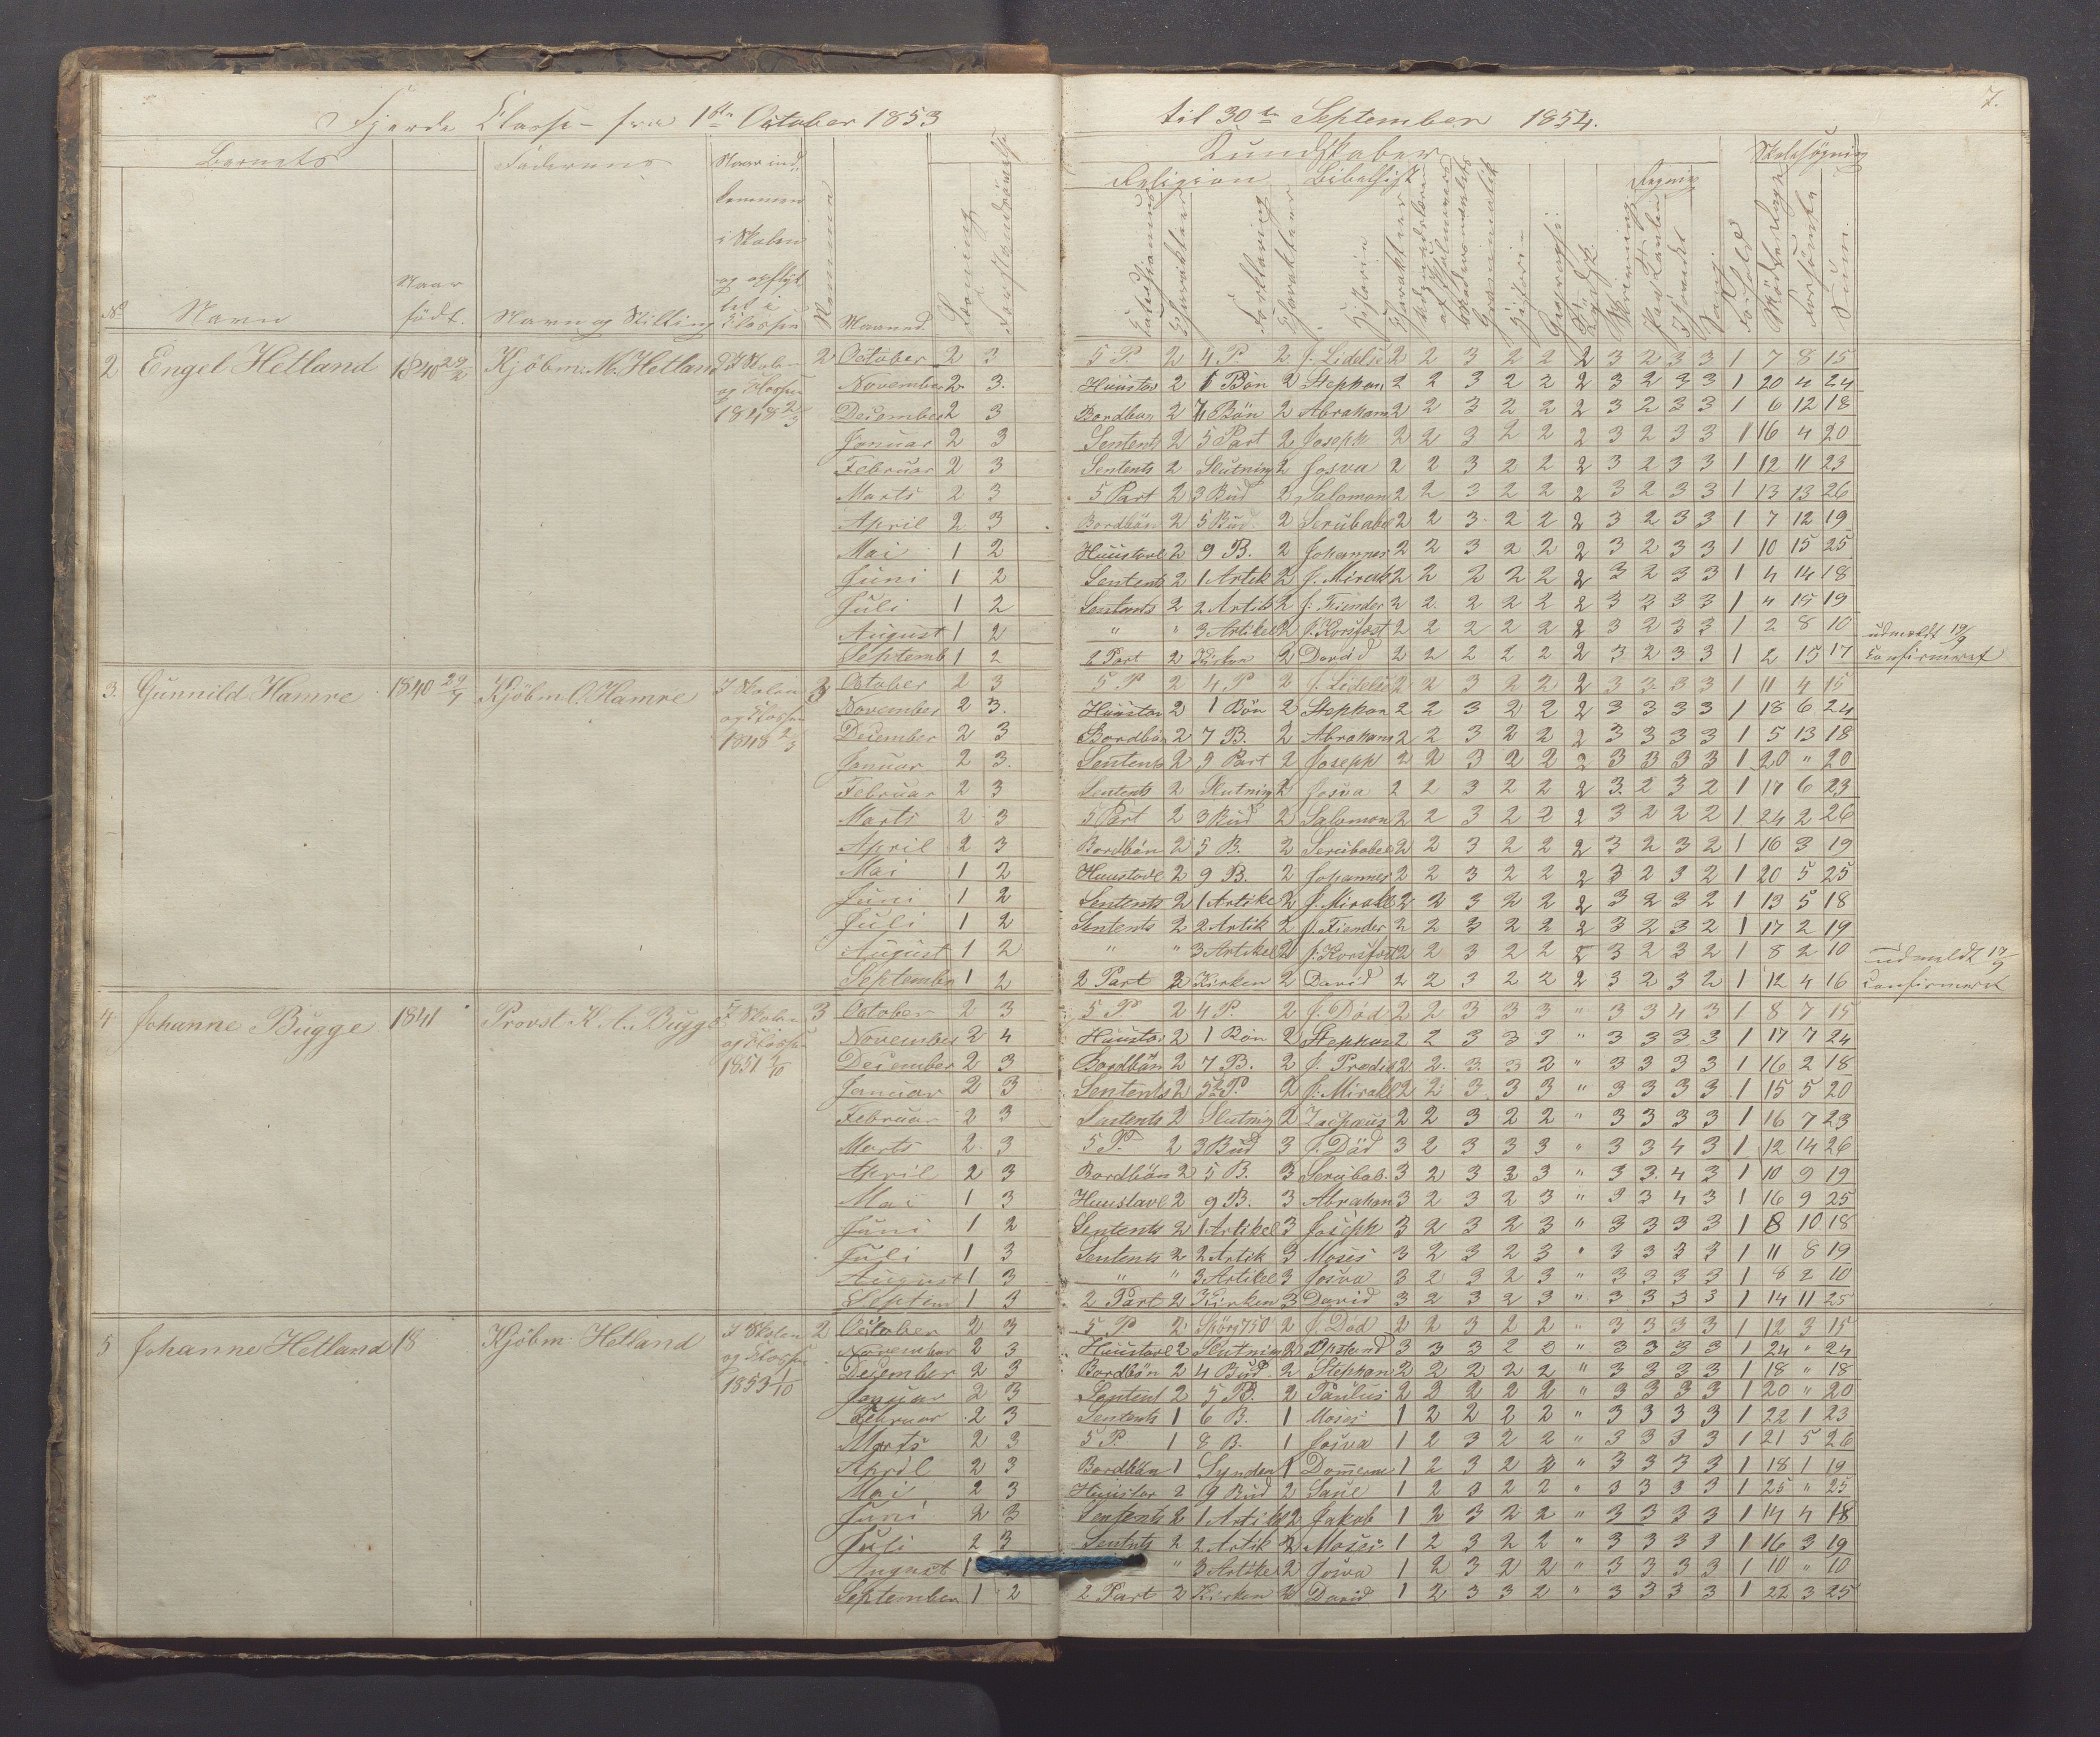 Fjerde Classe - fra 1ste October 1853 til 30te September 1854.
7.
Barnets
Kundskaber
Skolesøgning
Religion Bibelhist.
Regning
No Navn Naar født. Navn og Stilling Maaned.
Historie
Sum.
2 Engel Hetland 1840 Kjøbm. M. Hetland I Skolen og Klassen 1848 2/3
October 2 3 5 P. 2 4 P. 2 J. Lidelse 2 2 3 2 2 2 3 2 3 3 1 7 8 15
November 2 3. Huustav 2 1 Bøn 2 Stephan 2 2 3 2 2 2 3 2 3 3 1 20 4 24
December 2 3 Bordbøn 2 7 Bøn 2 Abraham 2 2 3 2 2 2 3 2 3 3 1 6 12 18
Januar 2 3 Sentents 2 5 Part 2 Joseph 2 2 3 2 2 2 3 2 3 3 1 16 4 20
Februar 2 3 Sentents 2 Slutning 2 Josva 2 2 3 2 2 2 3 2 3 3 1 12 11 23
Marts 2 3 5 Part 2 3 Bud 2 Salomon 2 2 3 2 2 2 3 2 3 3 1 13 13 26
April 2 3 Bordbøn 2 5 Bud 2 Serubabel 2 2 3 2 2 2 3 2 3 3 1 7 12 19
Mai 1 2 Huustavl 2 9 B. 2 Johannes 2 2 3 2 2 2 3 2 3 3 1 10 15 25
Juni 1 2 Sentents 2 1 Artik 2 J. Mirakl 2 2 2 2 2 2 3 2 3 3 1 4 14 18
Juli 1 2 Sentents 2 2 Artik 2 J. Fiender 2 2 2 2 2 2 3 3 3 3 1 4 15 19
August 1 2 " " 3 Artikel 2 J. Korsfæst 2 2 2 2 2 2 3 2 3 3 1 2 8 10 udmeldt 19/9
Septemb 1 2 2 Part 2 Kirken 2 David 2 2 2 2 2 2 3 2 3 3 1 2 15 17 Confirmeret
3. Gunnild Hamre 1840 29/7 Kjøbm C. Hamre I Skolen og Klassen 1848 2/3
October 2 3 5 P 2 4 P 2 J. Lidelse 2 2 3 2 2 2 3 3 3 3 1 11 4 15
November 2 3. Huustav 2 1 Bøn 2 Stephan 2 2 3 2 2 2 3 3 3 3 1 18 6 24
December 2 3 Bordbøn 2 7 B. 2 Abraham 2 2 3 2 2 2 3 3 3 3 1 5 13 18
Januar 2 3. Sentents 2 5 Part 2 Joseph 2 2 3 2 2 2 3 3 3 3 1 20 " 20
Februar 2 3 Sentents 2 Slutning 2 Josva 2 2 3 2 2 2 3 2 3 2 1 17 6 23
Marts 2 3 5 Part 2 3 Bud 2 Salomon 2 2 3 2 2 2 3 2 2 2 1 24 2 26
April 2 3 Bordbøn 2 5 B. 2 Serubabel 2 2 3 2 2 2 3 2 3 2 1 16 3 19
Mai 1 2 Huustavl 2 9 B. 2 Johannes 2 2 3 2 2 2 3 2 3 2 1 20 5 25
Juni 1 2 Sentents 2 1 Artike 2 J. Mirakl 2 2 3 2 2 2 3 2 3 2 1 13 5 18
Juli 1 2 Sentents 2 2 Artik 2 J. Fiender 2 2 3 2 2 2 3 2 3 2 1 17 2 19
August 1 2 " " 3 Artikel 2 J. Korsfæst 2 2 3 2 2 2 3 2 3 2 1 8 2 10 udmeldt 19/9
September 1 2 2 Part 2 Kirken 2 David 2 2 3 2 2 2 3 2 3 2 1 12 4 16 Confirmeret
4. Johanne Bugge 1841 Provst K. A. Bugge I Skolen og Klassen 1851 1/10
3 October 2 3 5 P 2 4 P. 2 J. Død 2 2 3 3 3 " 3 3 4 3 1 8 7 15
November 2 4 Huustav 2 1 Bøn 2 Stephan 2 2 3 3 3 " 3 3 3 3 1 17 7 24
December 2 3 Bordbøn 2 7 B. 2 J. Prædik 2 2 3 3 2 " 3 3 3 3 1 16 2 18
Januar 2 3 Sentents 2 5te P. 2 J. Mirakl 2 2 3 3 3 " 3 3 3 3 1 15 5 20
Februar 2 3 Sentents 2 Slutning 2 Zachæus 2 2 3 2 2 " 3 3 3 3 1 16 7 23
Marts 2 3 5 P. 2 3 Bud 3 J. Død 3 2 3 3 3 " 3 3 4 3 1 12 14 26
April 2 3 Bordbøn 2 5 B. 3 Serubab. 3 2 3 3 3 " 3 3 4 3 1 10 9 19
Mai 1 3 Huustavl 2 9 B. 3 Abraham 3 2 3 2 3 " 3 3 4 3 1 16 9 25
Juni 1 2 Sentents 2 1 Artikel 3 Joseph 3 2 3 2 3 " 3 3 3 3 1 8 10 18
Juli 1 3 Sentents 2 2 Artik 3 Moses 3 2 3 2 3 " 3 3 3 3 1 11 8 19
August 1 3 " " 3 Artikel 3 Josva 3 2 3 2 3 " 3 3 3 3 1 8 2 10
Septem 1 3 2 Part 2 Kirken 3 David 3 2 3 2 3 " 3 3 3 3 1 14 11 25
5 Johanne Hetland 18 Kjøbm. Hetland I Skolen og Klassen 1853 1/10
2 October 2 3 5 P 2 2 J. Død 2 2 3 2 2 " 3 3 3 3 1 12 3 15
November 2 3 Huustavl 2 Slutning 2 Opstand 3 3 3 2 2 " 3 3 3 3 1 24 " 24
December 2 3 Bordbøn 2 4 Bud 2 Stephan 2 2 2 2 2 " 3 3 3 3 1 18 " 18
Januar 2 3 Sentent 2 5 B. 2 Paulus 2 2 2 2 2 " 3 3 3 3 1 20 " 20
Februar 2 3 Sentents 1 6 B. 1 Moses 1 2 2 2 2 " 3 3 3 3 1 22 1 23
Marts 2 3 5 P. 1 8 B. 1 Josva 1 2 3 2 2 " 3 3 3 3 1 21 5 26
April 2 3 Bordbøn 1 Synden 1 1 2 3 2 2 " 3 3 3 3 1 18 1 19
Mai 2 3 Huustav 2 9 Bud 2 Saul 1 2 3 2 2 " 3 3 3 3 1 25 " 25
Juni 2 3 Sentents 2 1 Artikl 2 Jakob 1 2 3 2 2 " 3 3 3 3 1 14 4 18
Juli 2 3 Sentents 2 2 Artik 2 Moses 1 2 3 2 2 " 3 3 3 3 1 16 3 19
August 1 " 3 Artikel 2 Josva 1 2 3 2 2 " 3 3 3 3 1 10 " 10
September 1 2 2 Part 2 Kirken 2 David 1 2 3 3 2 " 3 3 3 3 1 22 3 25